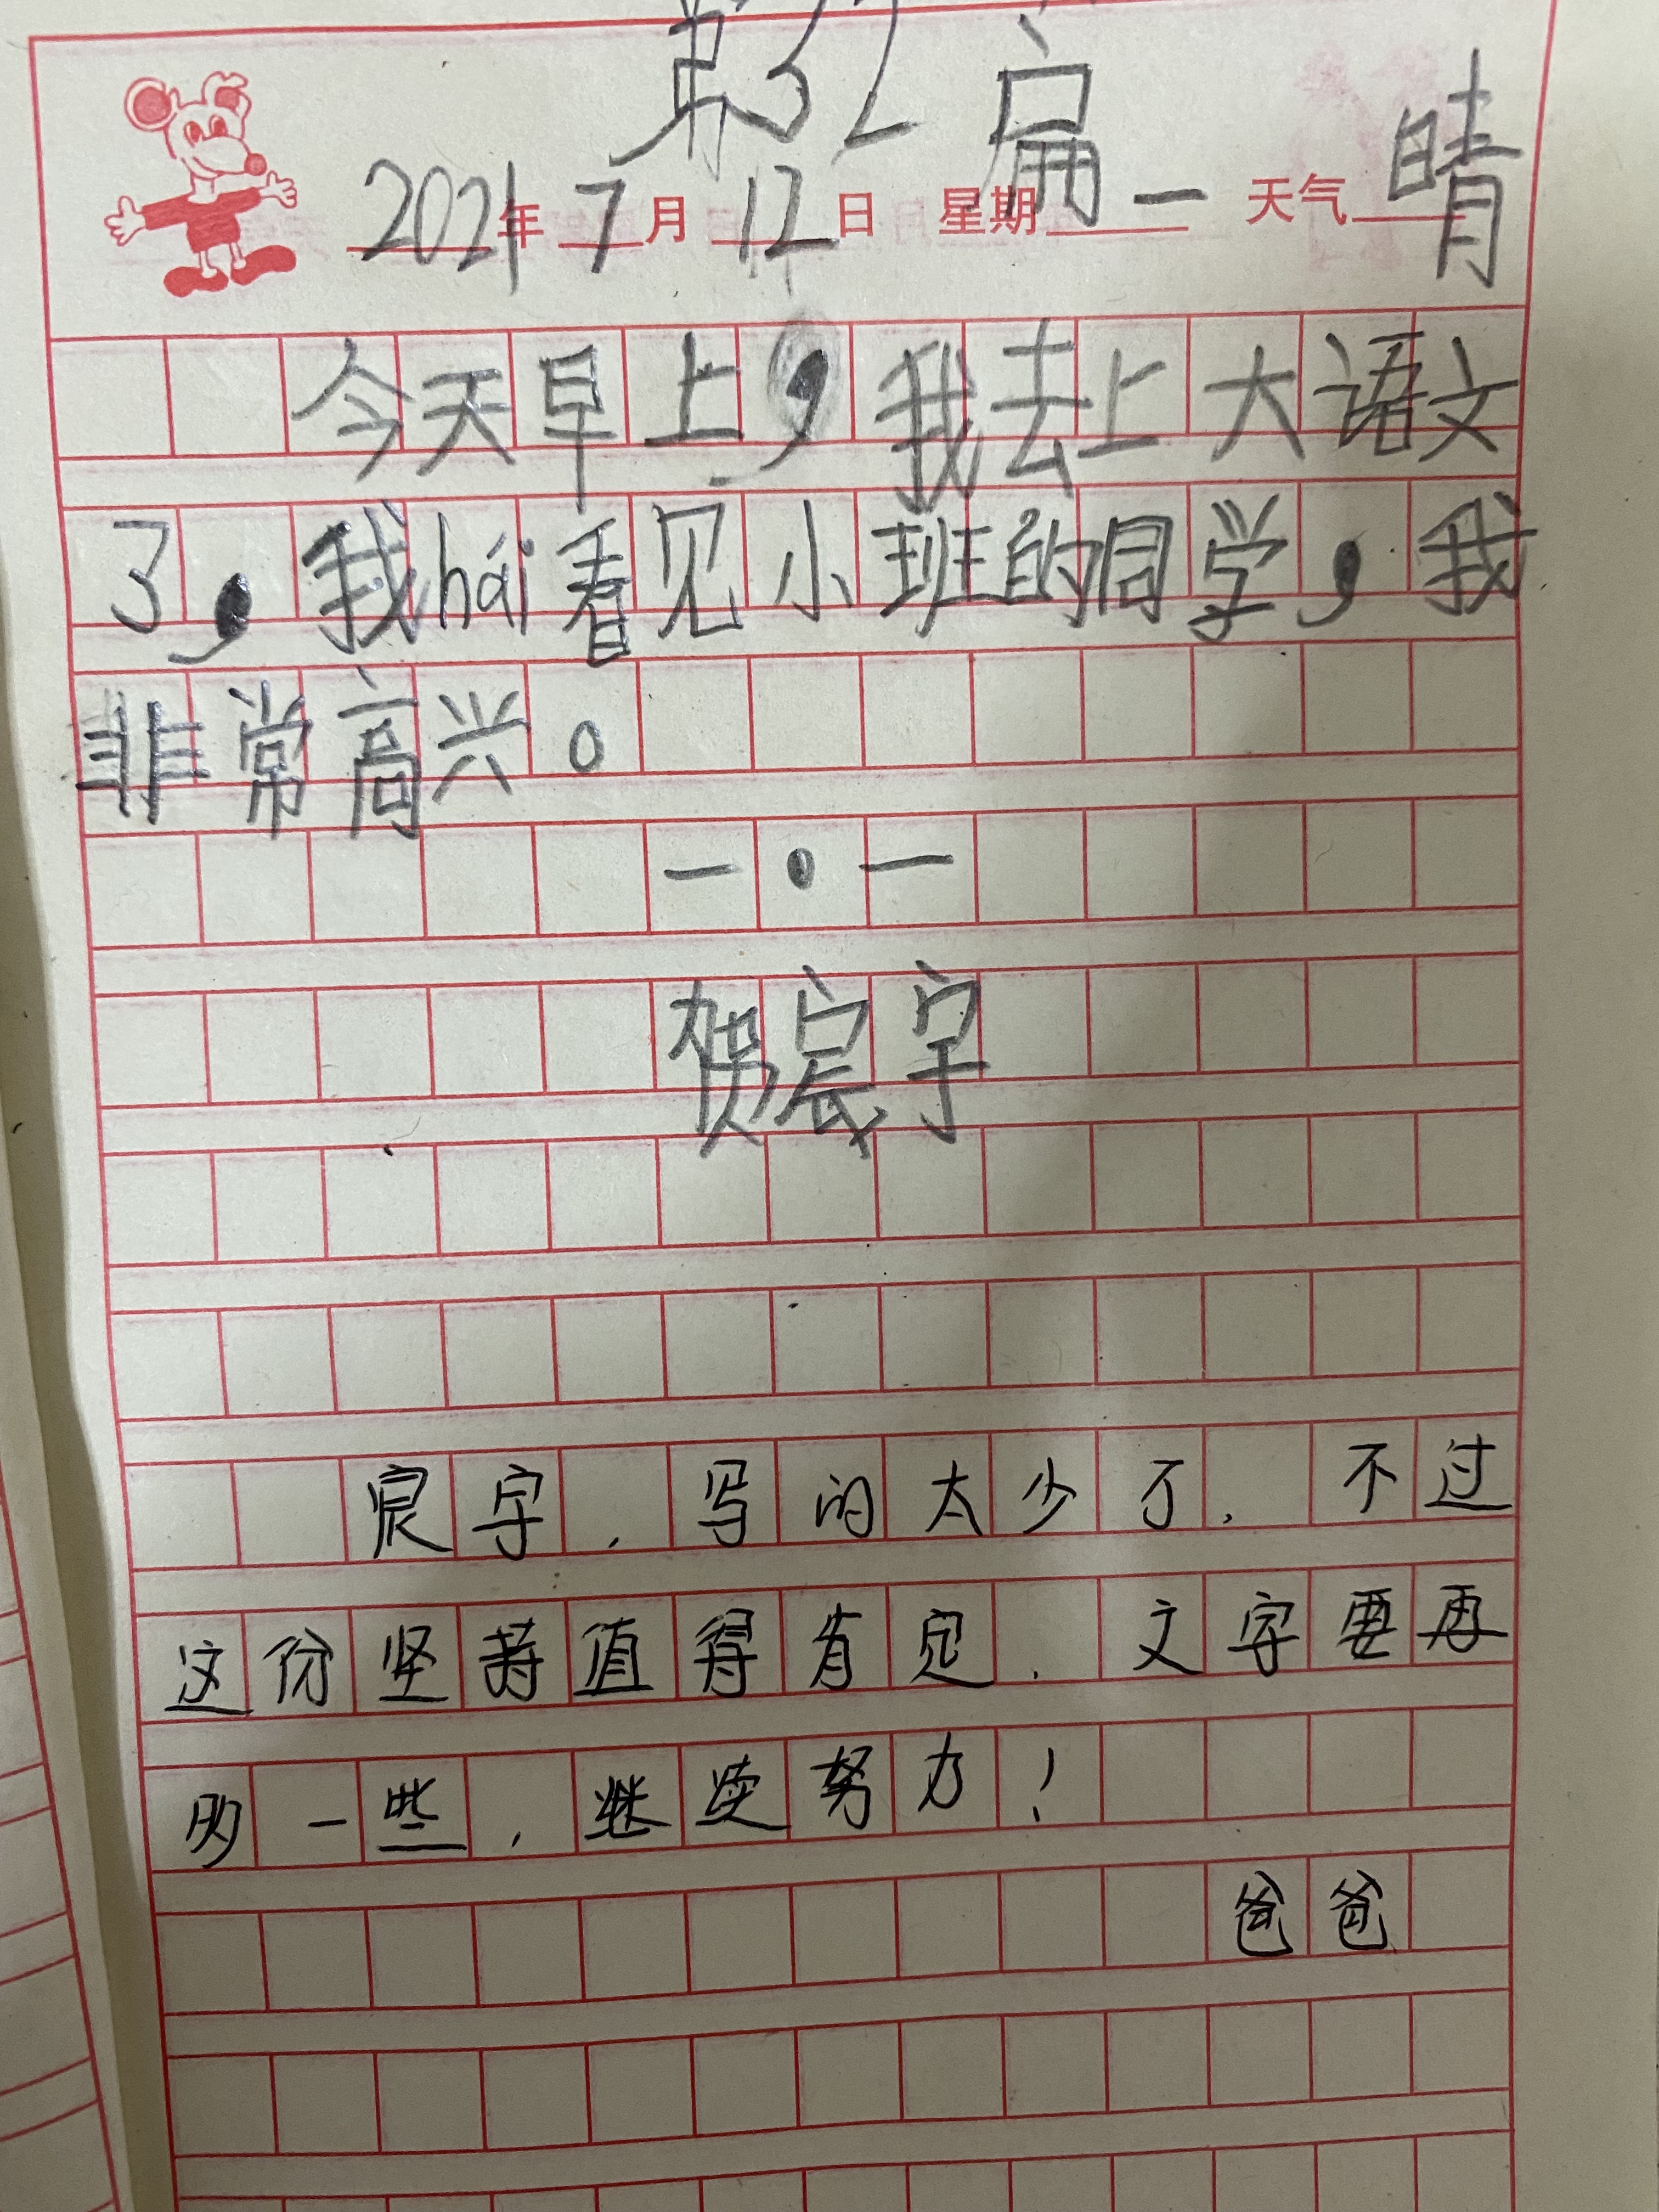 第32篇
2021年7月12日 星期一 天气晴
今天早上，我去上大语文
了，我hái看见小班的同学，我
非常高兴。
一·一
贺宸宇
宸宇，写的太少了，不过
这份坚持值得肯定，文字要再
多一些，继续努力！
爸爸